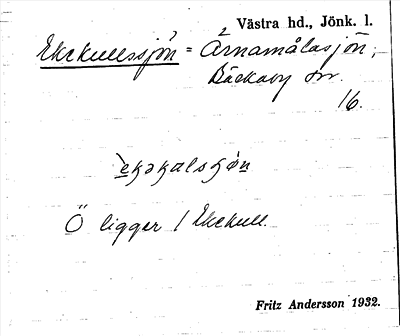 Västra hd., Jönk. l.
Ekekullssjön = Årnamålasjön,
Bäckaby sn.
16.
Ö ligger / Ekekull.
Fritz Andersson 1932.